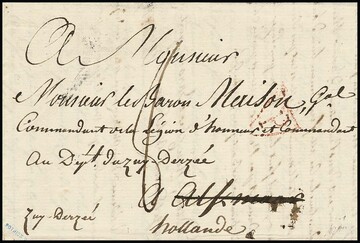 A Monsieur
Monsieur le Baron Maison, Gal
Commandant de la Légion d'honneur et Commandant
Au Dépt. du Zuy-Derzée
A Alkmaar
Zuy-Derzée
hollande